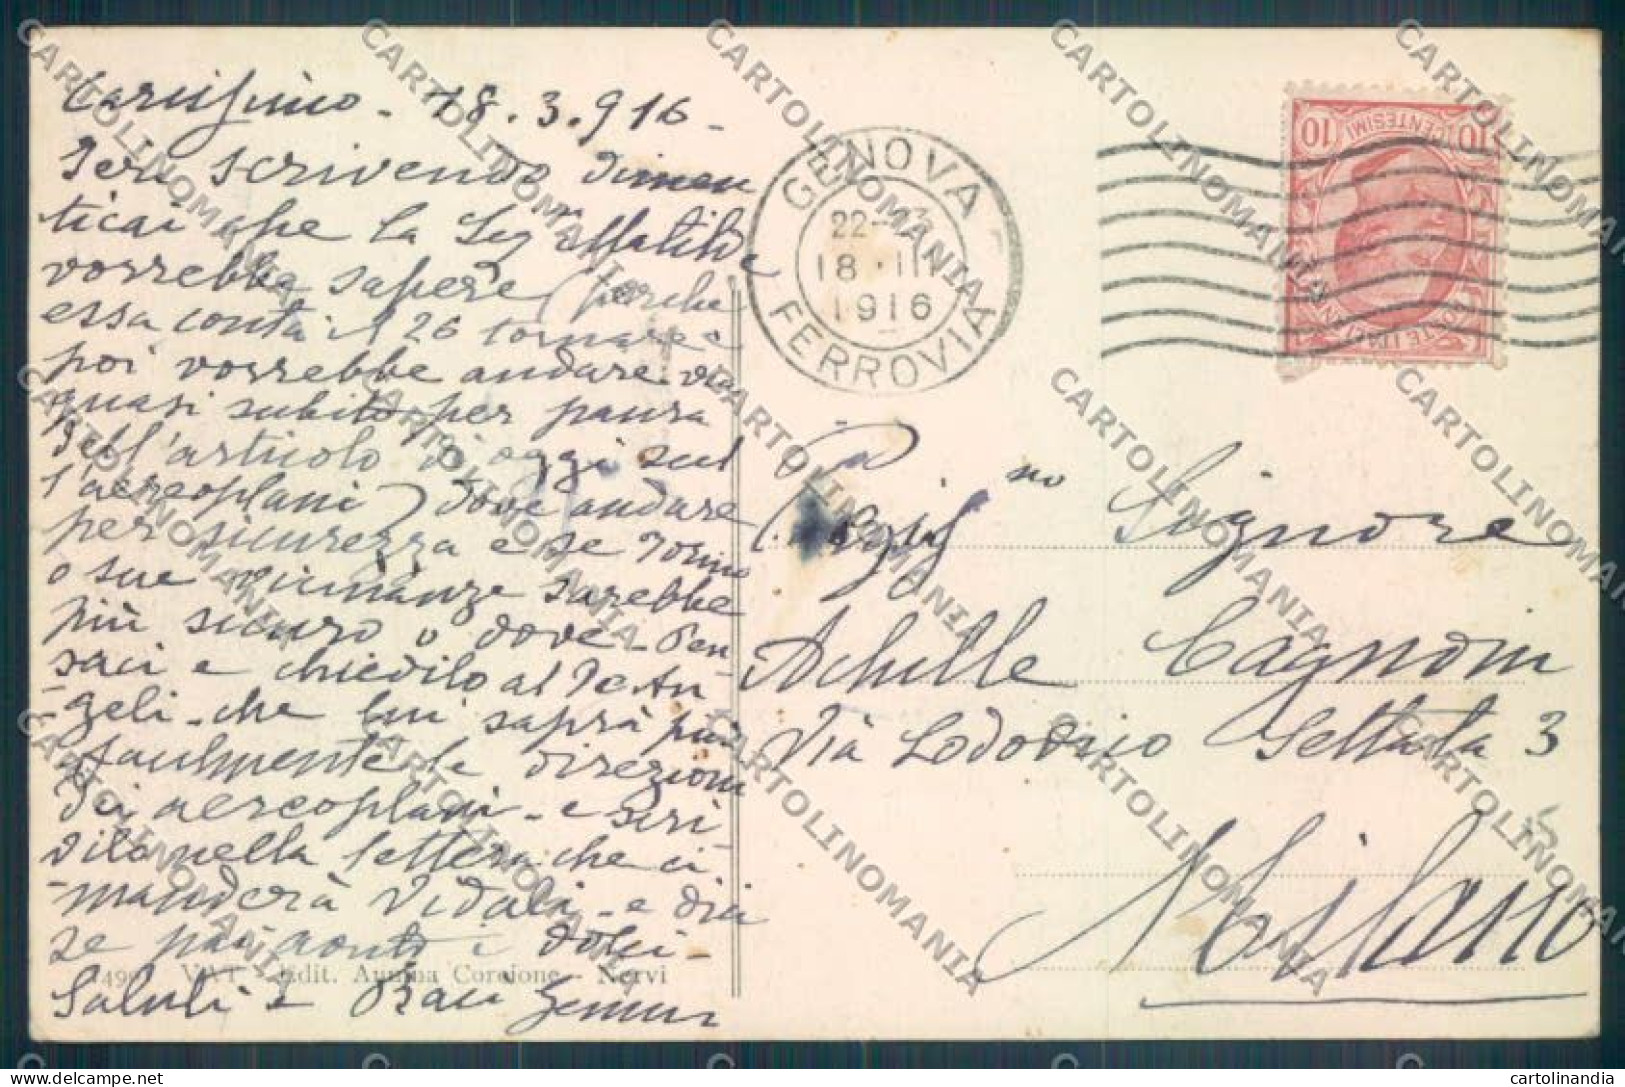 Carissimo - 18.3.916 -
Ieri scrivendo dimen
ticai che la Sig Matilde
vorrebbe sapere (perche
essa conta il 26 tornare e
poi vorrebbe andare via
quasi subito per paura
dell'articolo di oggi sul
l'aereoplani) dove andare
per sicurezza e se Torino
o sue vicinanze sarebbe
più sicuro o dove - Pen
saci e chiedilo al De An
geli - che lui saprà più
facilmente le direzioni
di aereoplani - e scri
vilo nella lettera che ci
manderà Vidali - e dici
se poi conti i dolci -
Saluti e Baci
490 VAT - Edit. Annina Corcione - Nervi
GENOVA
22-
18 · III
1916
FERROVIA
10 CENTESIMI 10
POSTE ITALIANE
Pregiss mo Signore
Achille Cagnoni
Via Lodovico Settala 3
Milano
CARTOLINOMANIA
cartolinandia